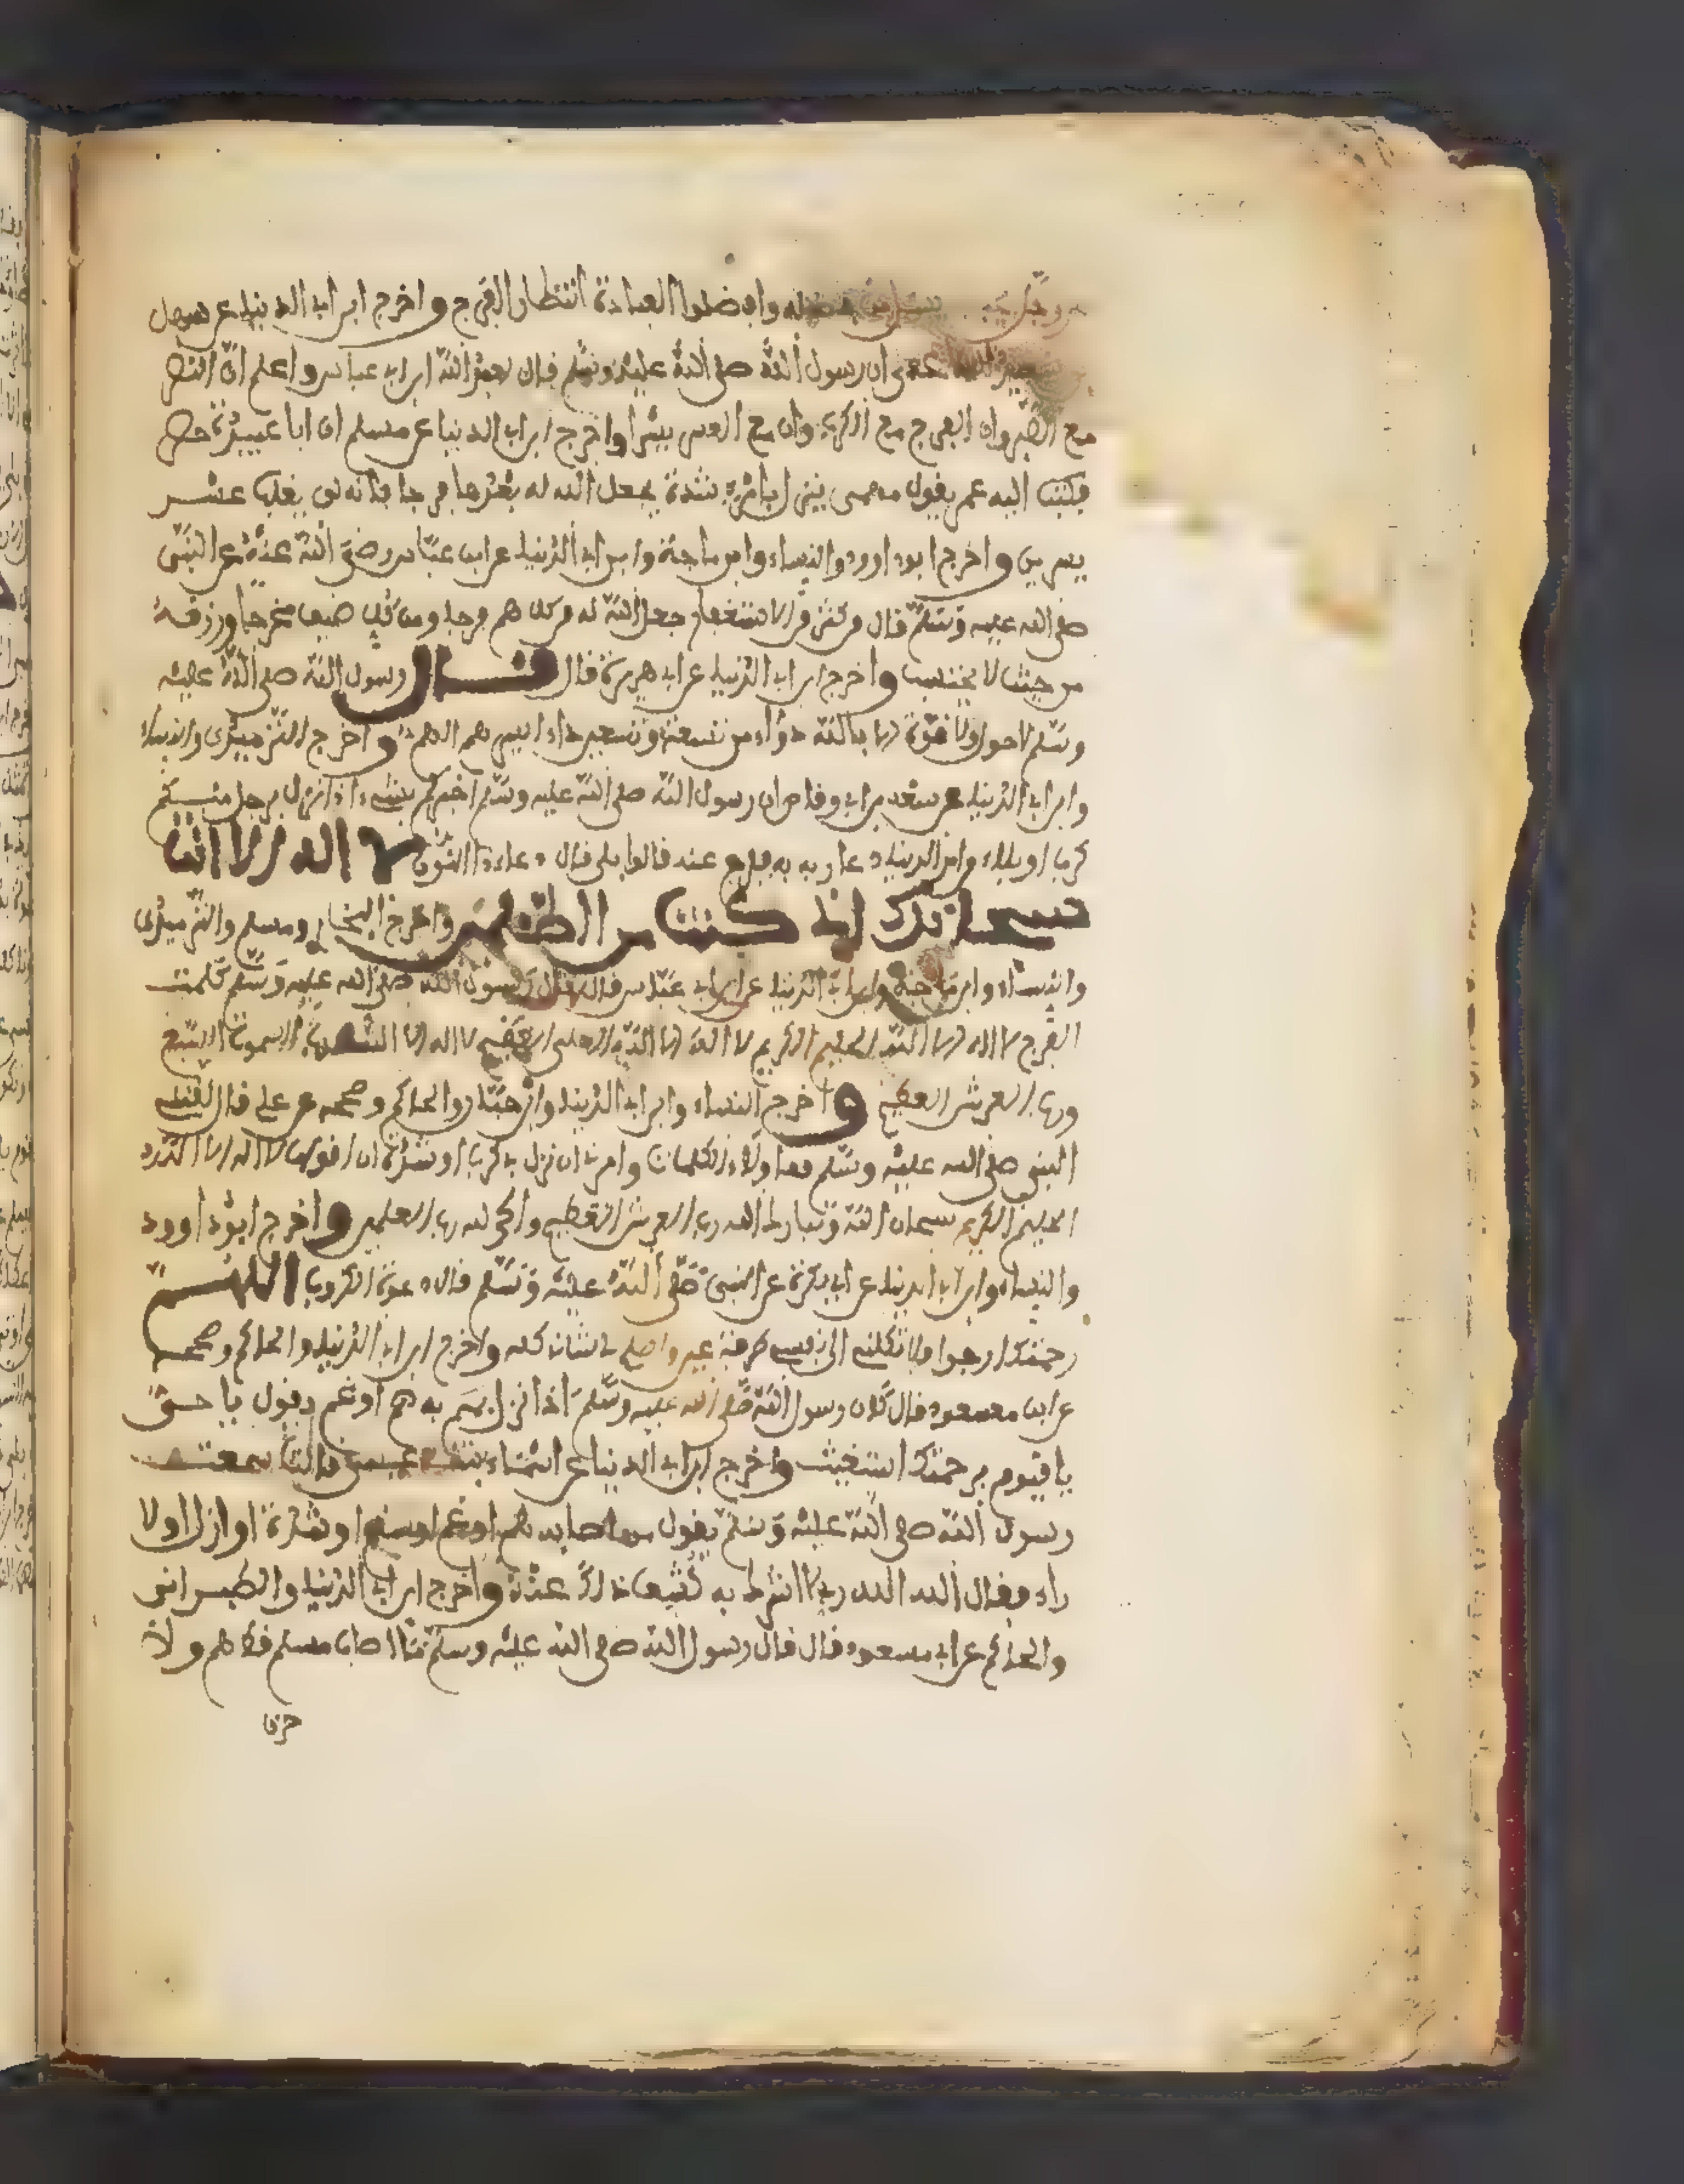 وجل يحب يسئل من فضله وافضلوا العبادة انتظار الفرج واخرج ابن ابى الدنيا عن سهل
ان رسول الله صلى الله عليه وسلم قال لعبد الله ابن عباس واعلم ان النصر
مع الصبر وان الفرج مع الكرب وان مع العسر يسرا واخرج ابن ابى الدنيا عن مسلم ان ابا عبيدة حصر
فكتب اليه عمر يقول مهمى ينزل بامرء شدة يجعل الله له بعدها فرجا فانه لن يغلب عسر
يسرين واخرج ابو داوود والنساء وابن ماجة وابن ابى الدنيا عن ابن عباس رضى الله عنه عن النبى
صلى الله عليه وسلم قال من كثر من الاستغفار جعل الله له من كل هم فرجا ومن كل ضيق مخرجا ورزقه
من حيث لا يحتسب واخرج ابن ابى الدنيا عن ابى هريرة قال قال رسول الله صلى الله عليه
وسلم لا حول ولا قوة الا بالله دواء من تسعة وتسعين داء ايسرهم الهم واخرج الترميذى والنساء
وابن ابى الدنيا عن سعد بن ابى وقاص ان رسول الله صلى الله عليه وسلم اخبركم بشىء اذا نزل برجل منكم
كرب او بلاء من الدنيا دعا ربه به ففرج عنه قالوا بلى قال دعاء ذا النون لا اله الا انت
سبحانك انى كنت من الظلمين واخرج البخارى ومسلم والترميذى
والنساء وابن ماجة وابن ابى الدنيا عن ابن عباس قال قال رسول الله صلى الله عليه وسلم كلمت
الفرج لا اله الا الله الحليم الكريم لا اله الا الله العلى العظيم لا اله الا الله رب السموت السبع
ورب العرش العظيم واخرج النساء وابن ابى الدنيا وابن حبان والحاكم وصححه عن على قال لقننى
النبى صلى الله عليه وسلم هاولاء الكلمات وامرنى ان نزل بى كرب او شدة ان اقولها لا اله الا الله
الحليم الكريم سبحان الله وتبارك الله رب العرش العظيم والحمد لله رب العلمين واخرج ابو داوود
والنساء وابن ابى الدنيا عن ابى بكرة عن النبى صلى الله عليه وسلم قال دعوة الكروب اللهم
رحمتك ارجوا ولا تكلنى الى نفسى طرفة عين واصلح لى شانى كله واخرج ابن ابى الدنيا والحاكم وصححه
عن ابن مسعود قال كان رسول الله صلى الله عليه وسلم اذا نزل به هم او غم يقول يا حى
يا قيوم برحمتك استغيث واخرج ابن ابى الدنيا عن اسماء بنت عميس قالت سمعت
رسول الله صلى الله عليه وسلم يقول من اصابه هم او غم او سقم او شدة او ازل او لا
راه فقال الله الله ربى لا اشرك به كشف ذلك عنه واخرج ابن ابى الدنيا والطبرانى
والحاكم عن ابن مسعود قال قال رسول الله صلى الله عليه وسلم ما اصاب مسلم قط هم ولا
حزن